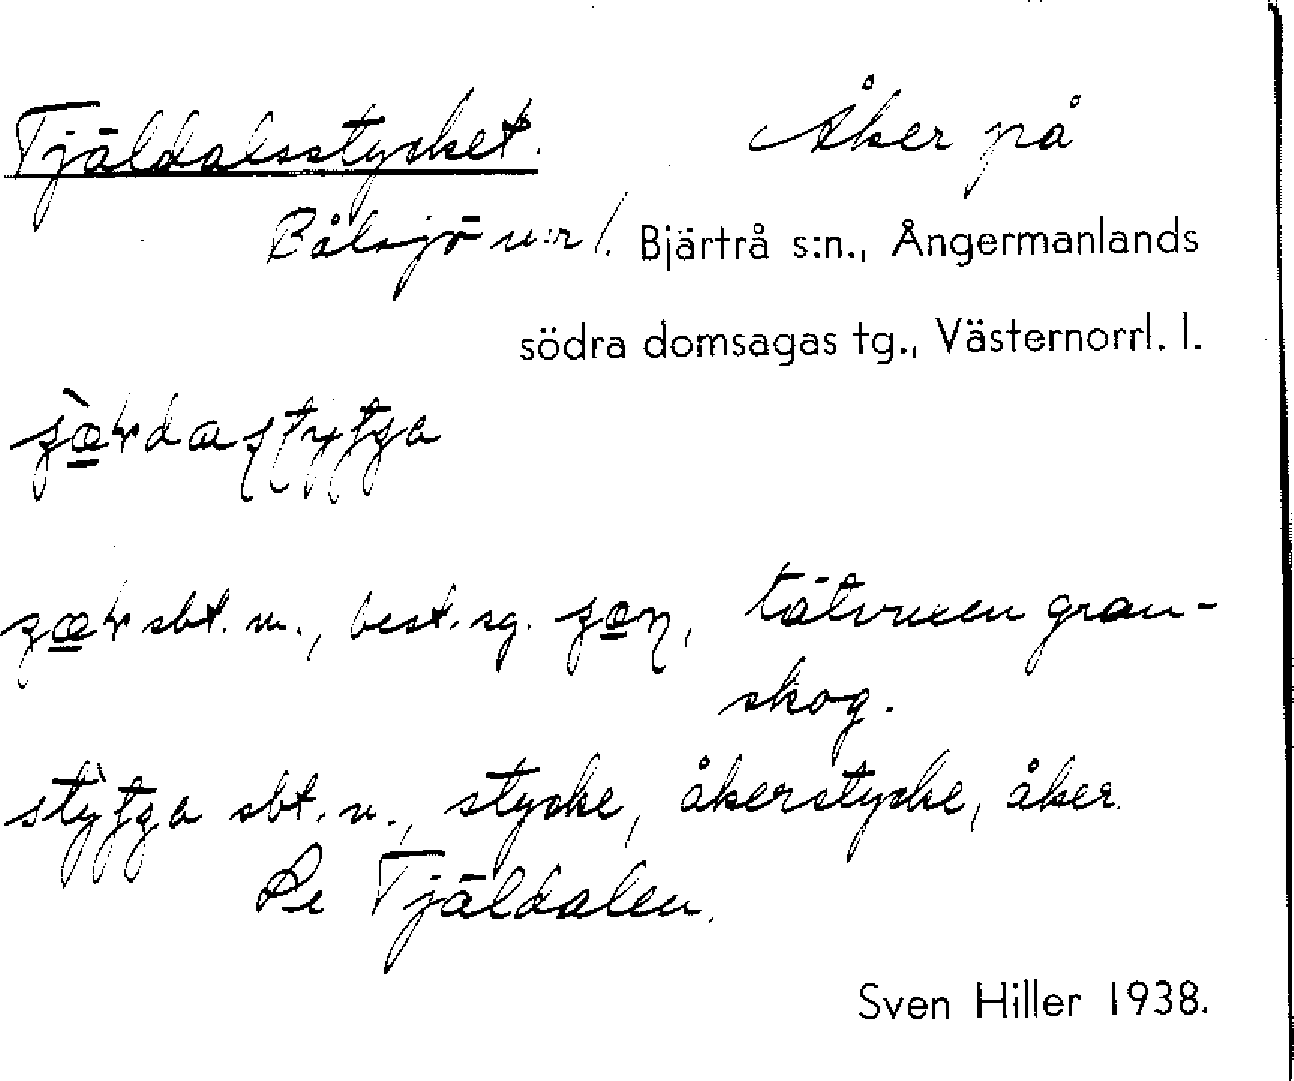 Tjäldalsstycket. Åker på
Bålsjö n:r 1. Bjärtrå s:n., Ångermanlands
södra domsagas tg., Västernorrl. l.
sbt. m., best. sg. tätvuxen gran-
skog.
sbt. n., stycke, åkerstycke, åker.
Se Tjäldalen.
Sven Hiller 1938.